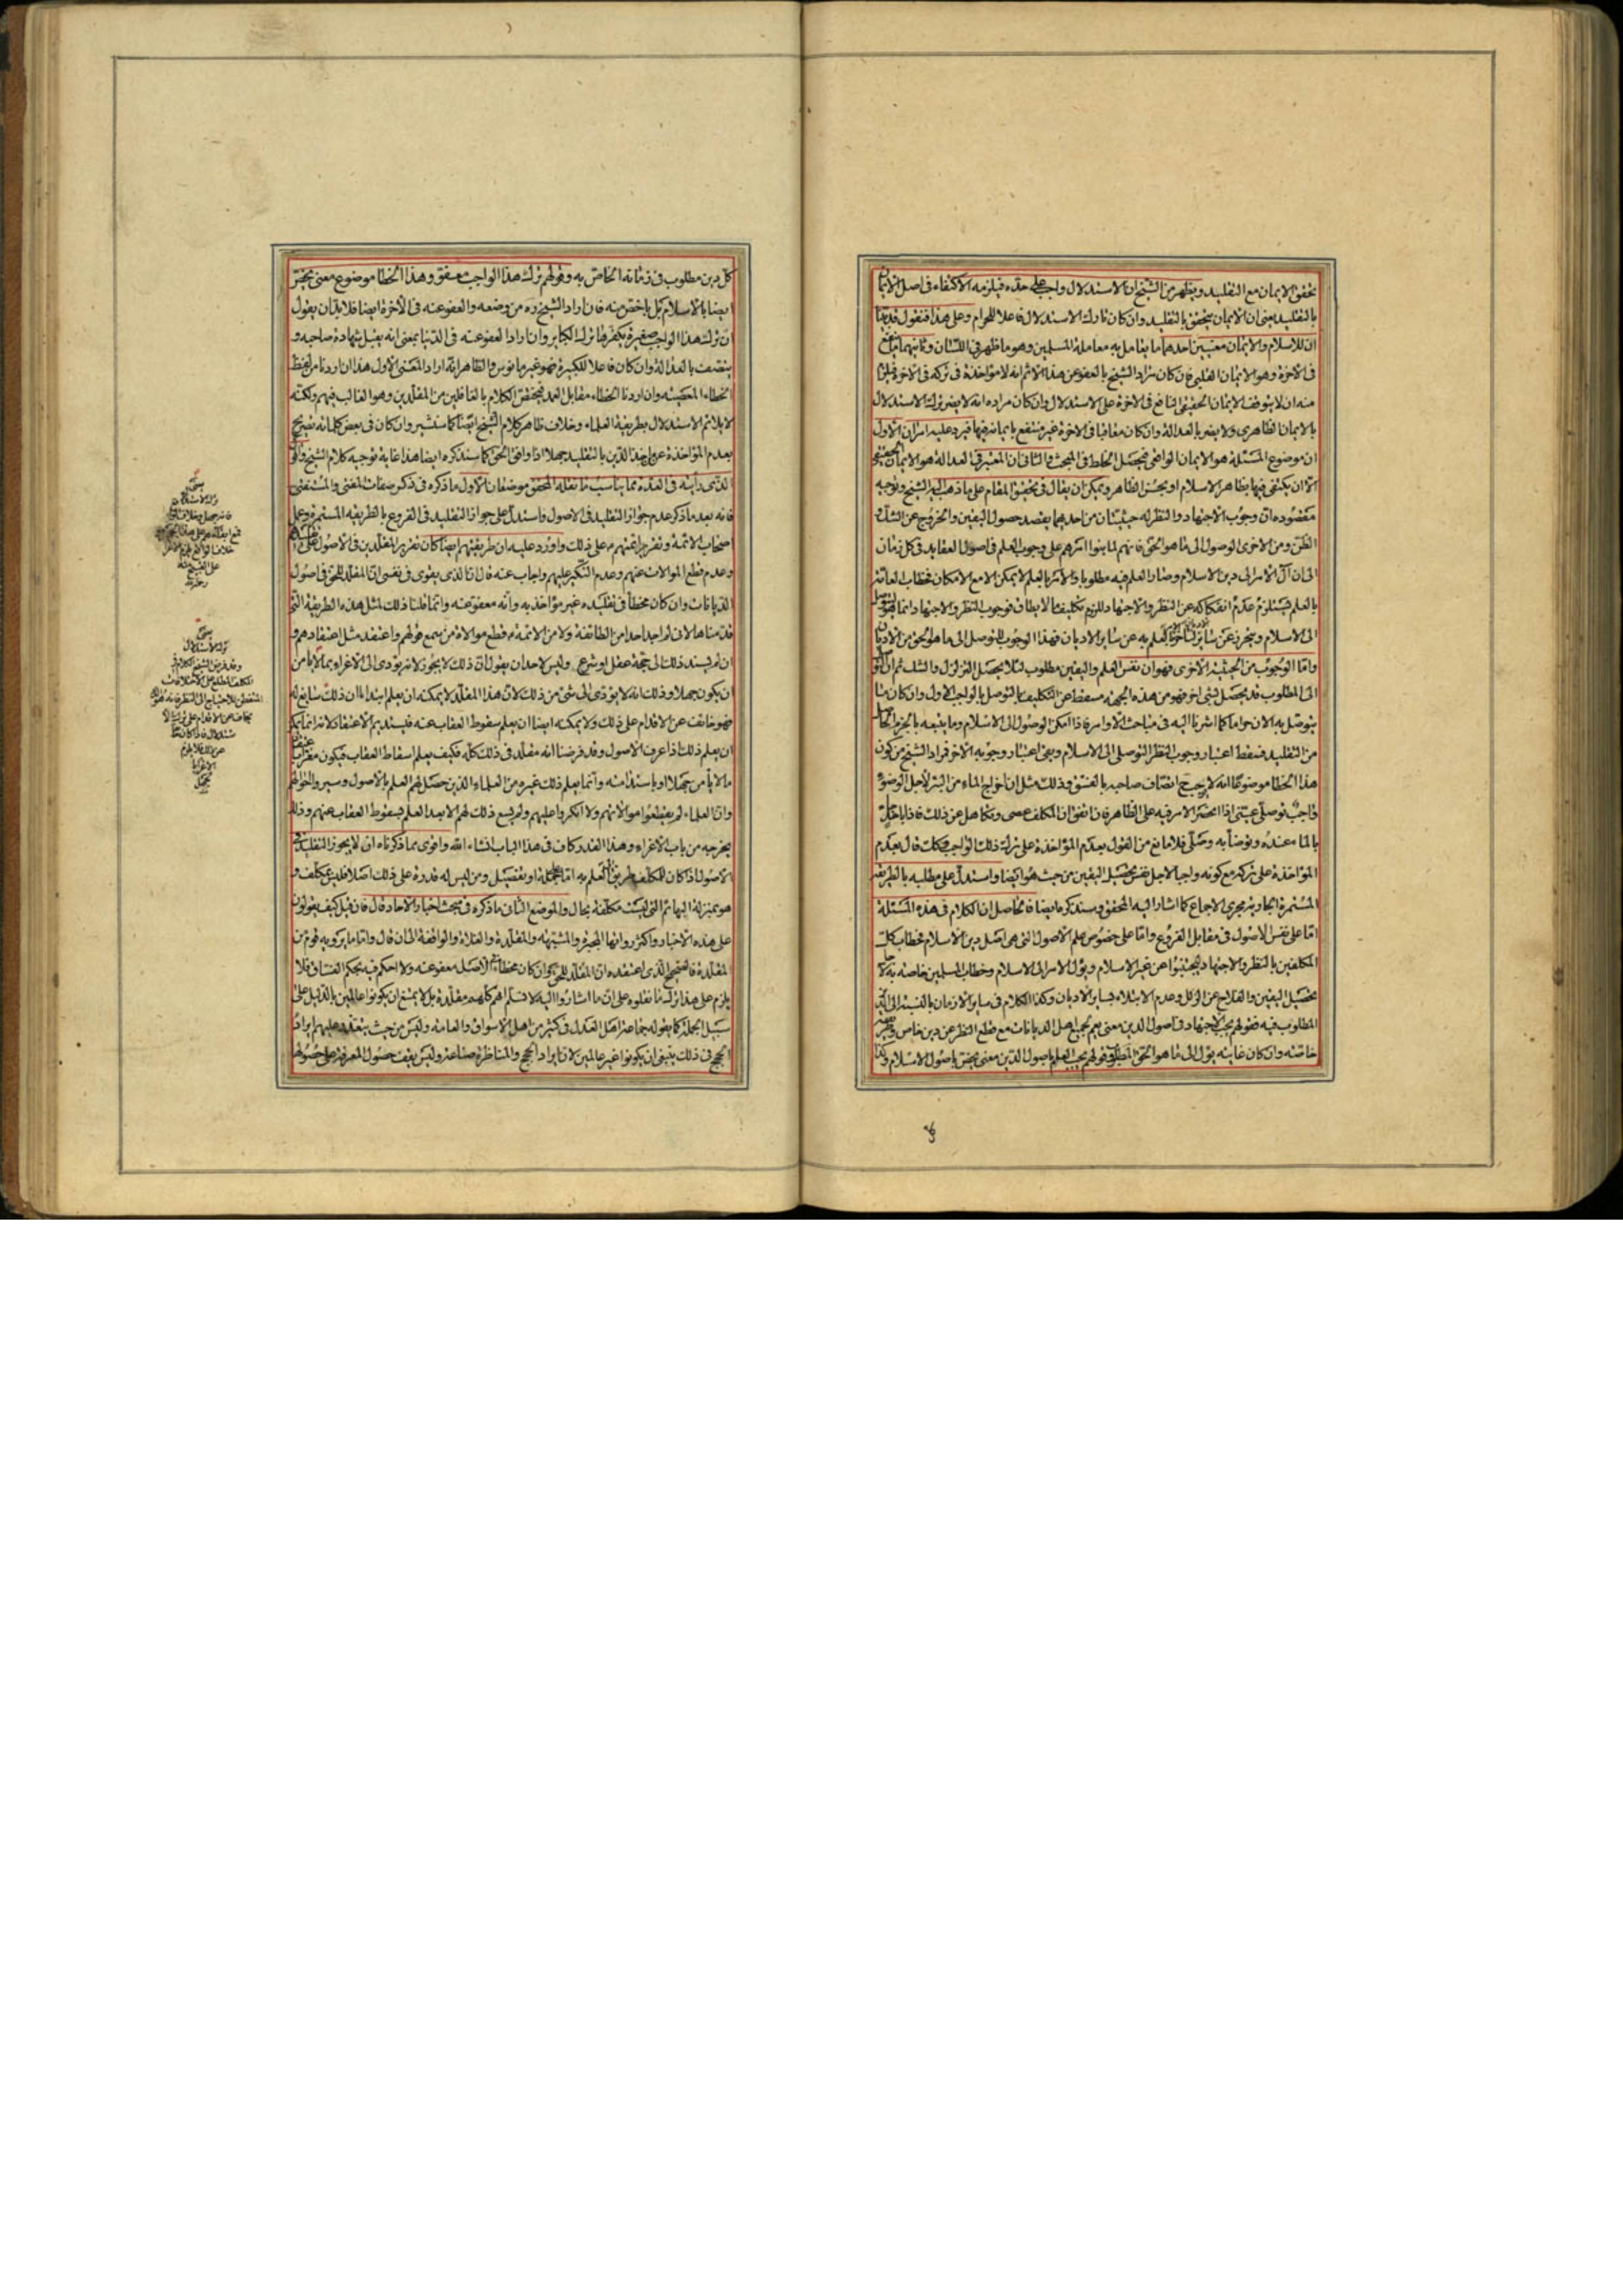 تحقق الايمان مع التقليد ويظهر من الشيخ ان الاستدلال واجب على حده فيلزمه الاكتفاء فى اصل الايمان
بالتقليد يعنى ان الايمان يتحقق بالتقليد وان كان تارك الاستدلال فاعلا للحرام وعلى هذا فنقول قد بينا
ان للاسلام والايمان معنيين احدهما ما يعامل به معاملة المسلمين وهو ما ظهر فى اللسان وثانيهما ما ينفع
فى الاخرة وهو الايمان القلبى فان كان مراد الشيخ بالعفو عن هذا الاثم انه لا مؤاخذة فى تركه فى الاخرة فيلزم
منه ان لا يتوقف الايمان الحقيقى النافع فى الاخرة على الاستدلال وان كان مراده انه لا يضر ترك الاستدلال
بالايمان الظاهرى ولا يضر بالعدالة وان كان معاقبا فى الاخرة غير منتفع بايمانه فيها فيرد عليه امران الاول
ان موضوع المسئلة هو الايمان الواقعى فيحصل الخلط فى المبحث والثانى ان المعتبر فى العدالة هو الايمان الحقيقى
الا ان يكتفى فيها بظاهر الاسلام او بحسن الظاهر ويمكن ان يقال فى تحقيق المقام على ما ذهب اليه الشيخ وتوجيه
مقصوده ان وجوب الاجتهاد والنظر له حيثيتان من احديهما يقصد حصول اليقين والخروج عن الشك و
الظن ومن الاخرى الوصول الى ما هو الحق فانهم لما بنوا امرهم على وجوب العلم فى اصول العقايد فى كل زمان
الى ان آل الامر الى دين الاسلام وصار العلم فيه مطلوبا والامر بالعلم لا يمكن الا مع الامكان فخطاب العامة
بالعلم يستلزم عدم انفكاكه عن النظر والاجتهاد للزوم تكليف ما لا يطاق فوجوب النظر والاجتهاد انما هو
الى الاسلام ويتحرز عن ساير العلم به عن ساير الاديان فهذا الوجوب للتوصل الى ما هو الحق من الاديان
واما الوجوب من الحيثية الاخرى فهو ان نفس العلم واليقين مطلوب لئلا يحصل التزلزل والشك ثم ان
الى المطلوب قد يحصل بشئ اخر فهو من هذه الجهة مسقط عن التكليف بالتوصل بالواجب الاول وان كان ما
يتوصل به الان حراما كما اشرنا اليه فى مباحث الاوامر فاذا امكن الوصول الى الاسلام وما يتبعه بالجزم الحاصل
من التقليد فسقط اعتبار وجوب النظر التوصلى الى الاسلام وبقى اعتبار وجوبه الاخر فمراد الشيخ من كون
هذا الخطا موضوعا انه لا يوجب اتصاف صاحبه بالفسق وذلك مثل ان اخراج الماء من البئر لاجل الوضوء
واجب توصلى عينى اذا انحصر الامر فيه على الظاهر فان اتفق ان المكلف عصى وتكاهل عن ذلك فاذا باحد
بالماء عنده وتوضأ به وصلى فلا مانع من القول بعدم المؤاخذة على ترك ذلك الواجب فكانه قال بعدم
المؤاخذة على تركه مع كونه واجبا لاجل نفس تحصيل اليقين من حيث هو ايضا واستدل على مطلبه بالطريقة
المستمرة الجارية مجرى الاجماع كما اشار اليه المحقق وسنذكره ايضا فالحاصل ان الكلام فى هذه المسئلة
اما على نفس الاصول فى مقابل الفروع واما على خصوص علم الاصول التى هى اصل دين الاسلام فخطاب كل
المكلفين بالنظر والاجتهاد ليجتنبوا عن غير الاسلام ويؤل الامر الى الاسلام وخطاب المسلمين خاصة به لاجل
تحصيل اليقين والفلاح عن الزلل وعدم الابتلاء بساير الاديان وكذا الكلام فى ساير الازمان بالنسبة الى
المطلوب فيه فقولهم يجب الاجتهاد فى اصول الدين معنى يعم جميع اهل الديانات مع قطع النظر عن دين خاص
خاصة وان كان غايته يؤل الى ما هو الحق المطلوب فقولهم يجب العلم باصول الدين معنى يختص باصول الاسلام وكذا
كل دين مطلوب فى زمانه الخاص به وقولهم ترك هذا الواجب معفو وهذا الخطا موضوع معنى يختص
ايضا بالاسلام بل باخص منه فان اراد الشيخ ره من وضعه والعفو عنه فى الاخرة ايضا فلا بد ان يقول
ان ترك هذا الواجب صغيرة يكفرها ترك الكباير وان اراد العفو عنه فى الدنيا بمعنى انه يقبل شهادة صاحبه و
يتصف بالعدالة وان كان فاعلا للكبيرة فهو غير مانوس والظاهر انه اراد المعنى الاول هذا ان اردنا من لفظ
الخطاء المعصية وان اردنا الخطاء مقابل العمد فيختص الكلام بالغافلين من المقلدين وهو الغالب فيهم ولكنه
لا يلائم الاستدلال بطريقة العلماء وخلاف ظاهر كلام الشيخ ايضا كما سنشير وان كان فى بعض كلماته تصريح
بعدم المؤاخذة عن اخذ الدين بالتقليد جهلا اذا وافق الحق كما سنذكره ايضا هذا غاية توجيه كلام الشيخ
الذى رأيته فى العدة مما يناسب ما نقله المحقق موضعان الاول ما ذكره فى ذكر صفات المفتى والمستفتى
فانه بعد ما ذكر عدم جواز التقليد فى الاصول واستدل على جواز التقليد فى الفروع بالطريقة المستمرة وعمل
اصحاب الائمة وتقرير ائمتهم ع على ذلك واورد عليه ان طريقتهم ايضا كان تقرير المقلدين فى الاصول
وعدم قطع الموالات عنهم وعدم النكير عليهم واجاب عنه قال ان الذى يقوى فى نفسى ان المقلد للحق فى اصول
الديانات وان كان مخطأ فى تقليده غير مؤاخذ به وانه معفو عنه وانما قلنا ذلك لمثل هذه الطريقة التى
قدمناها لانى لم اجد احدا من الطائفة ولا من الائمة ع قطع موالاة من سمع قولهم واعتقد مثل اعتقادهم و
ان لم يسند ذلك الى حجة عقل او شرع وليس لاحد ان يقول ان ذلك لا يجوز لانه يؤدى الى الاغراء بما لا يأمن
ان يكون جهلا وذلك انه لا يؤدى الى شئ من ذلك لان هذا المقلد لا يمكنه ان يعلم ابتداء ان ذلك سايغ له
فهو خائف عن الاقدام على ذلك ولا يمكنه ايضا ان يعلم سقوط العقاب عنه فليستديم الاعتقاد لانه انما يمكنه
ان يعلم ذلك اذا عرف الاصول وقد فرضنا انه مقلد فى ذلك كله فكيف يعلم اسقاط العقاب فيكون مغرى
ما لا يأمن جهلا او باستدامته وانما يعلم ذلك غيره من العلماء الذين حصل لهم العلم بالاصول وسبروا احوالهم
وان العلماء لم يقطعوا موالاتهم ولا انكروا عليهم ولم يسع ذلك لهم الا بعد العلم بسقوط العقاب عنهم وذلك
يخرجه من باب الاغراء وهذا القدر كاف فى هذا الباب انشاء الله واقوى مما ذكرناه ان لا يجوز التقليد فى
الاصول اذا كان للمكلف طريق الى العلم به اما جملة او بتفصيل ومن ليس له قدرة على ذلك اصلا فليس بمكلف و
هو بمنزلة البهائم التى ليست مكلفة بحال والموضع الثانى ما ذكره فى مبحث اخبار الاحاد قال فان قيل كيف يعولون
على هذه الاخبار واكثر رواتها المجبرة والمشبهة والمقلدة والغلاة والواقفة الى ان قال واما ما يرويه قوم من
المقلدة فالصحيح الذى اعتقده ان المقلد للحق وان كان مخطأ فى الاصل معفو عنه ولا احكم فيه بحكم الفساق فلا
يلزم على هذا ترك ما نقلوه على ان ما اشاروا اليه لا نسلم انهم كلهم مقلدة بل لا يمتنع ان يكونوا عالمين بالدليل على
سبيل الجملة كما يقوله جماعة اهل العدل فى كثير من اهل الاسواق والعامة وليس من حيث يتعذر عليهم ايراد
الحجج فى ذلك ينبغى ان يكونوا غير عالمين لان ايراد الحجج والمناظرة صناعة وليس يقف حصول المعرفة على حصولها
ترك الاستدلال
وقد فرض الشيخ الكلام فى
المكلف المطلع على الاختلافات